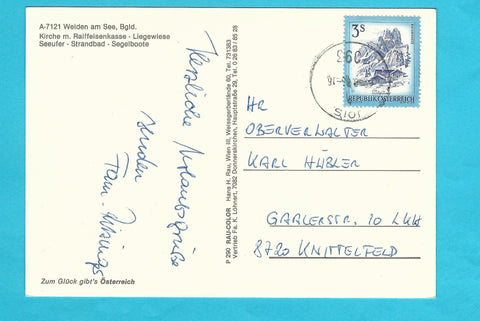 A-7121 Weiden am See, Bgld.
Kirche m. Raiffeisenkasse - Liegewiese
Seeufer - Strandbad - Segelboote
Herzliche Urlaubsgrüße
senden
Fam.
Zum Glück gibt's Österreich
P 290 RAU-COLOR Hans H. Rau, Wien III, Weissgerberlände 60, Tel. 731383
Vertrieb Fa. K. Löhnert, 7082 Donnerskirchen, Hauptstraße 28, Tel. 0 26 83 / 85 28
3S
REPUBLIK ÖSTERREICH
HR
OBERVERWALTER
KARL HÜBLER
GAALERSTR. 10
8720 KNITTELFELD